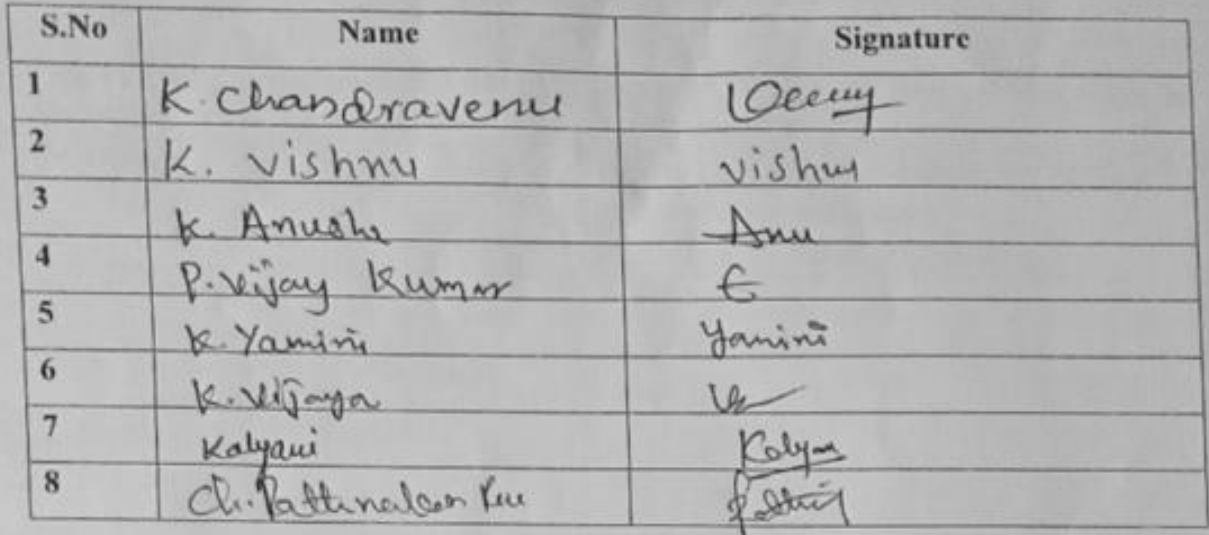 S.No Name Signature
1 K. Chandravenu
2 K. Vishnu Vishnu
3 K. Anusha Anu
4 P. Vijay Kumar
5 K. Yamini Yamini
6 K. Vijaya
7 Kalyani Kalyani
8 Ch.